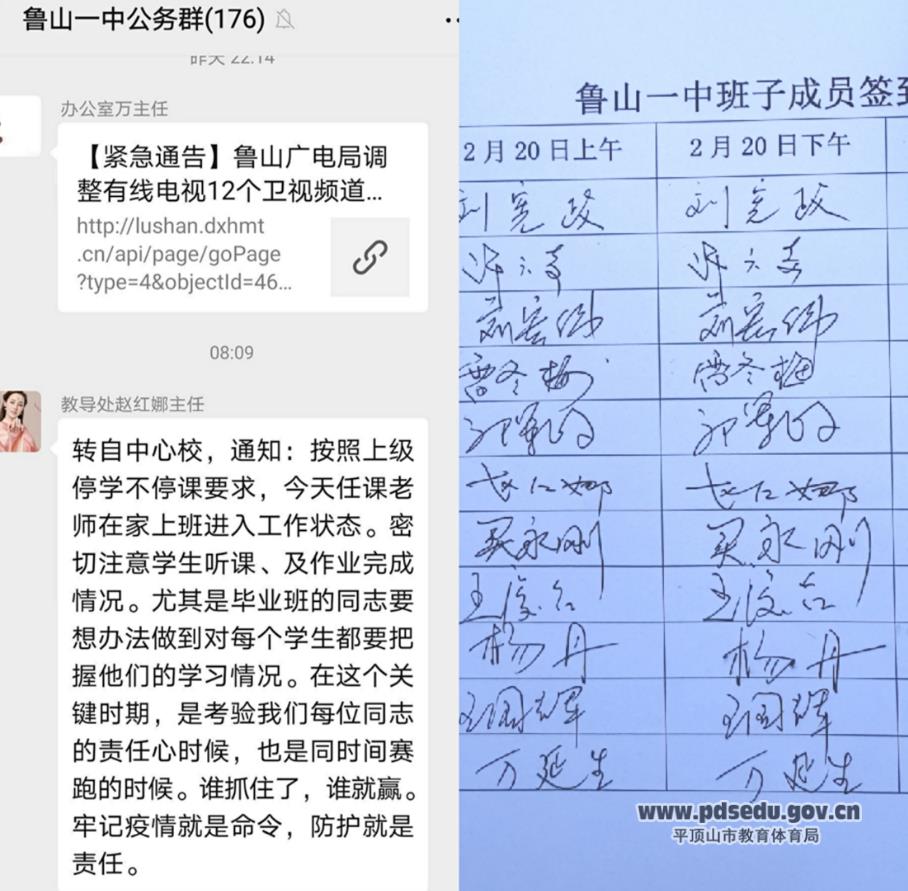 鲁山一中公务群(176)
昨天 22:14
办公室万主任
【紧急通告】鲁山广电局调
整有线电视12个卫视频道...
http://lushan.dxhmt
.cn/api/page/goPage
?type=4&objectId=46...
08:09
教导处赵红娜主任
转自中心校，通知：按照上级
停学不停课要求，今天任课老
师在家上班进入工作状态。密
切注意学生听课、及作业完成
情况。尤其是毕业班的同志要
想办法做到对每个学生都要把
握他们的学习情况。在这个关
键时期，是考验我们每位同志
的责任心时候，也是同时间赛
跑的时候。谁抓住了，谁就赢。
牢记疫情就是命令，防护就是
责任。
鲁山一中班子成员签到
2月20日上午 2月20日下午
刘宪政 刘宪政
曹冬梅 曹冬梅
买永刚 买永刚
杨丹 杨丹
万延生 万延生
www.pdsedu.gov.cn
平顶山市教育体育局